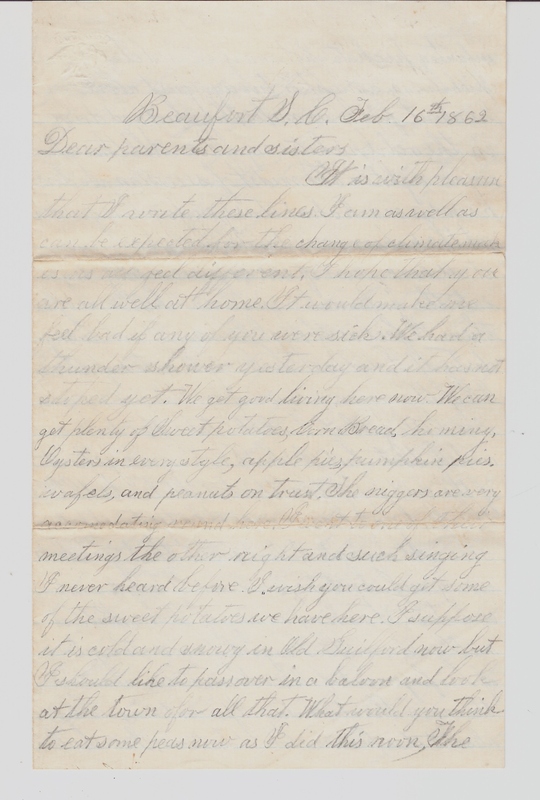 Beaufort S. C. Feb. 16th 1862
Dear parents and sisters
It is with pleasure
that I wrote these lines. I am as well as
can be expected for the change of climate
different. I hope that you
are all well at home. It would make me
feel bad if any of you were sick. We had a
thunder shower yesterday and it has not
stoped yet. We get good living here now. We can
get plenty of Sweet potatoes, Corn Bread, hominy,
Oysters in every style, apple pies, pumpkin pies,
wafels, and peanuts on trust. The niggers are very
accomodating round here. I went to one of their
meetings the other night and such singing
I never heard before. I wish you could get some
of the sweet potatoes we have here. I suppose
it is cold and snowy in Old Guilford now but
I should like to pass over in a baloon and look
at the town for all that. What would you think
to eat some peas now as I did this noon, The